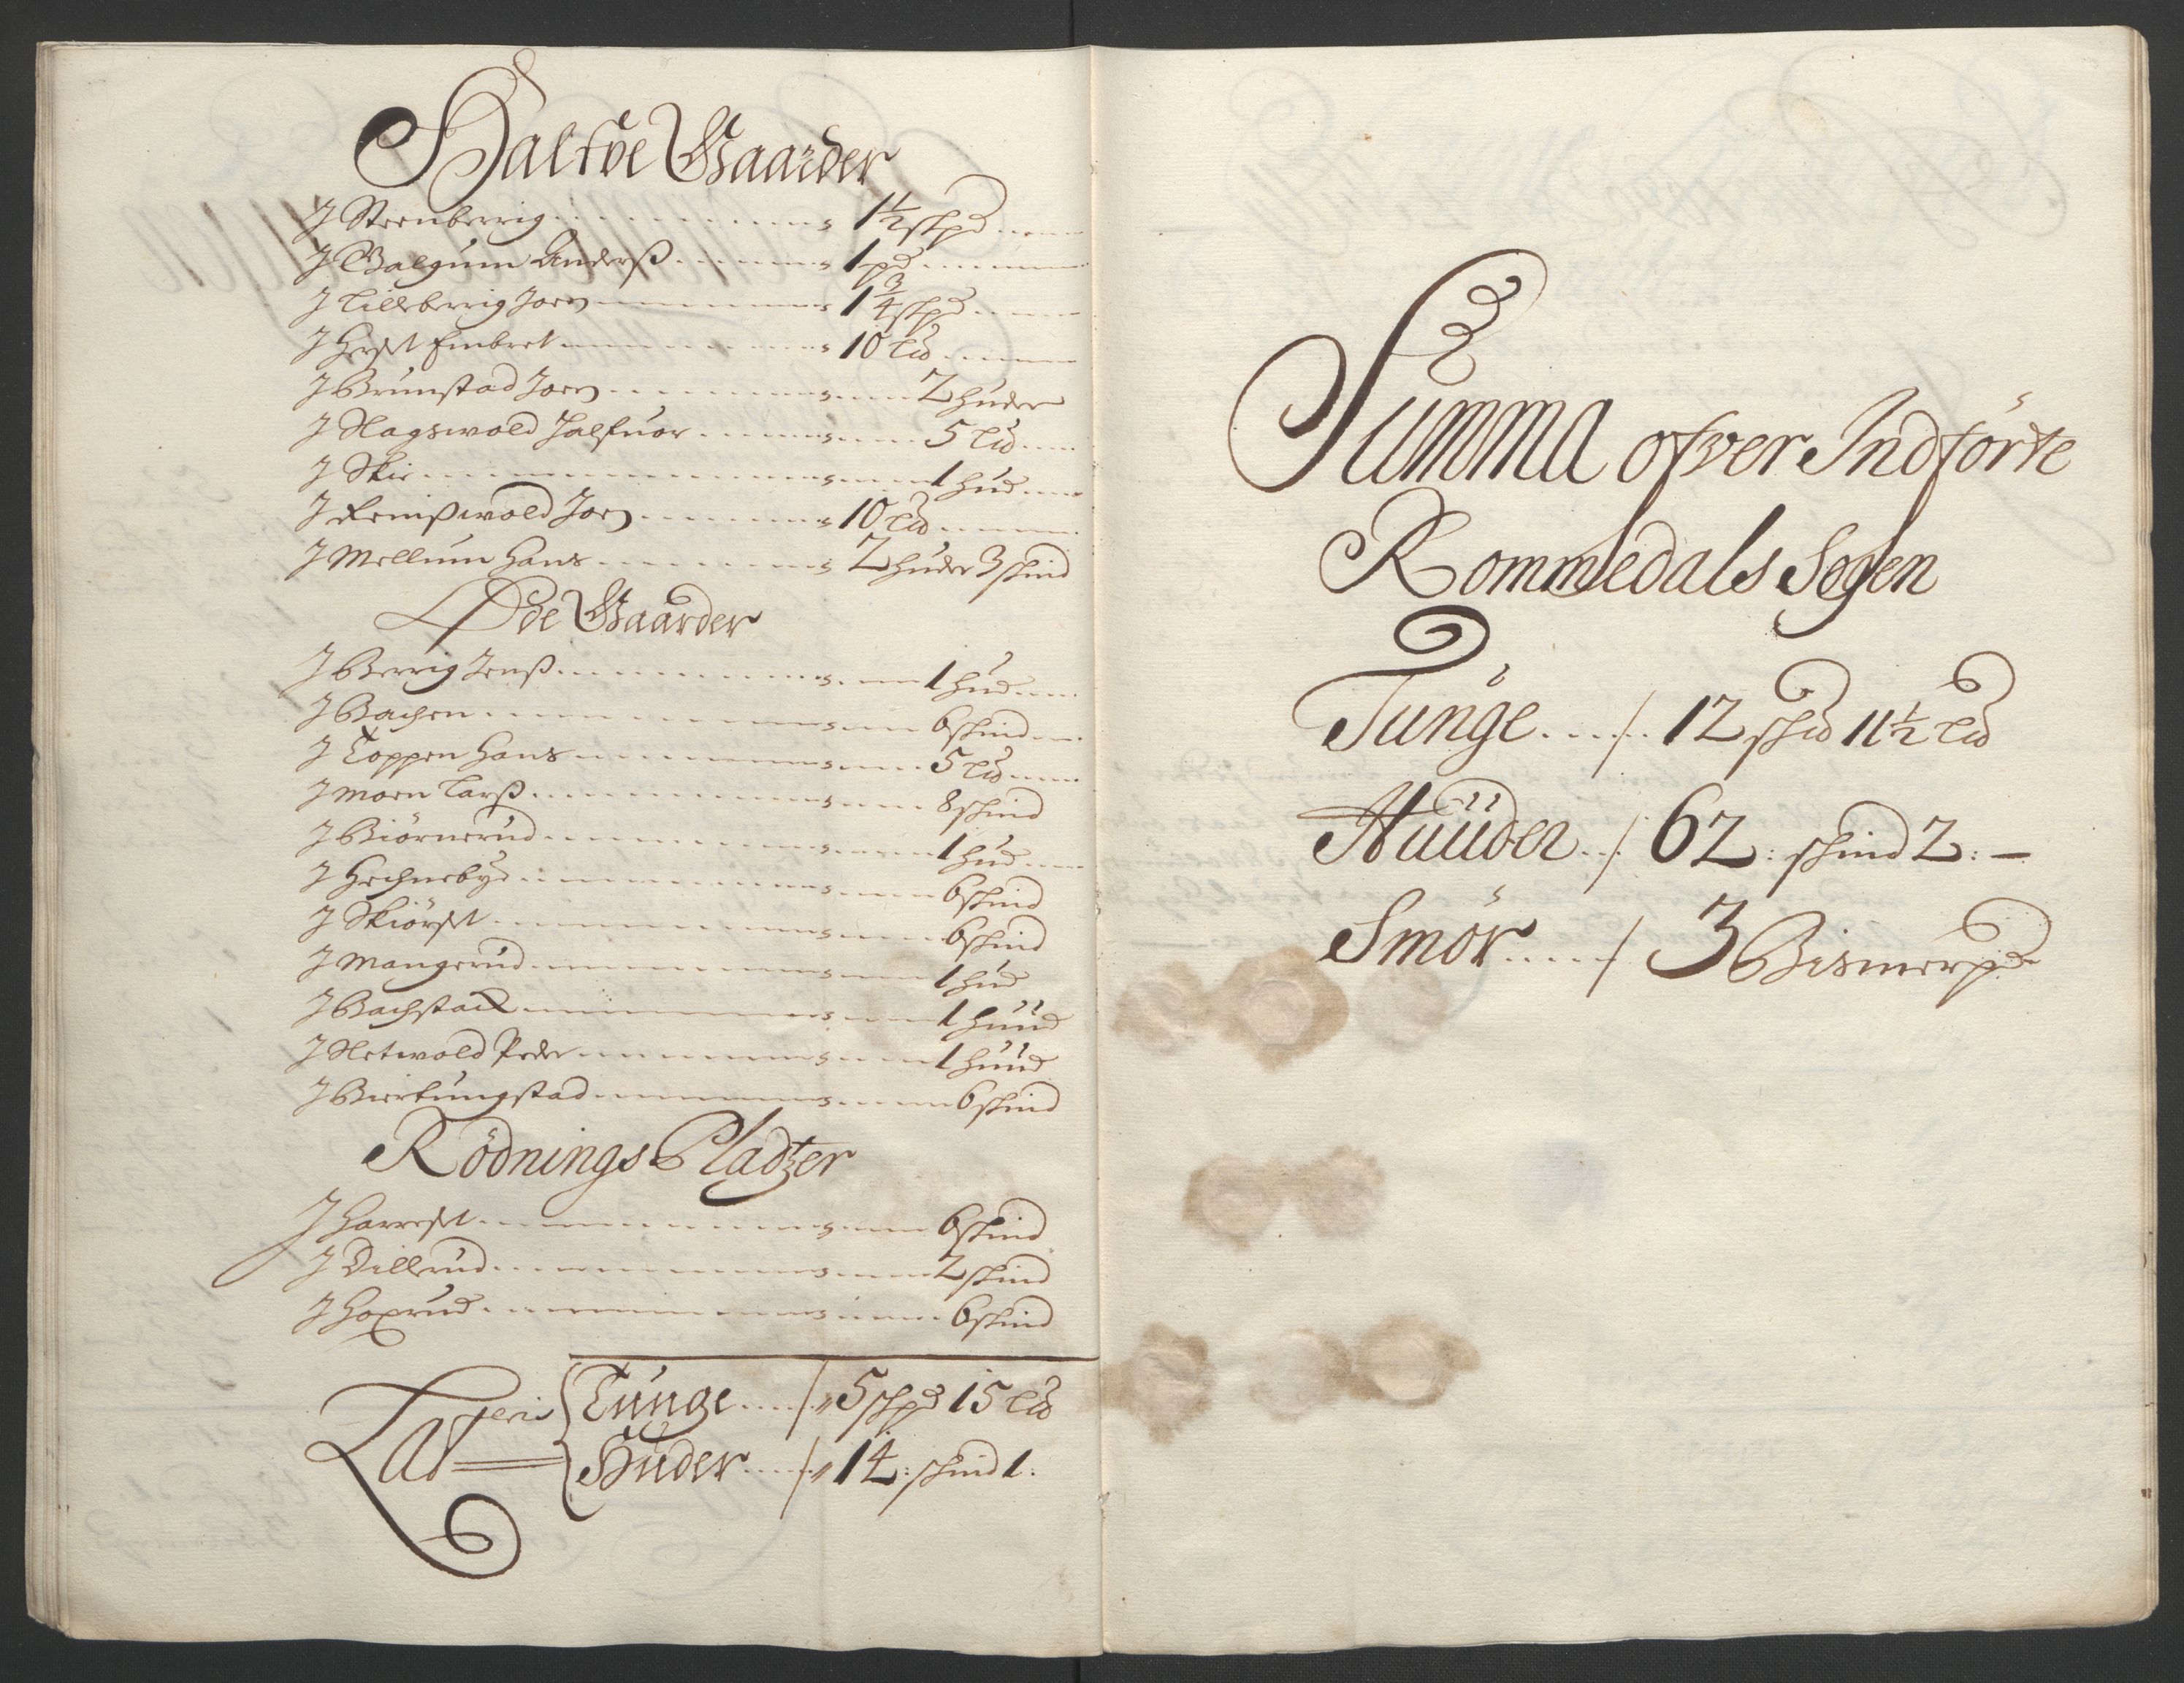 Halfve Gaarder
J Steenberrig 1½ skpd
J Galgum Anderß 1 pd
J Lilleberrig Joen 1¾ skpd
J Herset Embret 10 Ld
J Brunstad Joen 2 huder
J Nagswold Halfuor 5 Ld
J Skie 1 hud
J Femßwold Joen 10 Ld
J Mellum Hans 2 huder 3 skind
Øde Gaarder
J Berrig Jenß 1 hud
J Bachen 6 skind
J Toppen Hans 5 Ld
J Moen Larß 8 skind
J Biörnerud 1 hud
J Hechnebye 6 skind
J Skiörset 6 skind
J Mangerud 1 hud
J Bachstad 1 huud
J Netwold Peder 1 huud
J Birkungstad 6 skind
Rödnings Pladtzer
J Harreset 6 skind
J Dillerud 2 skind
J Hoxrud 6 skind
Lateris Tunge / 5 skpd 15 Ld
Huder / 14: skind 1:
Summa ofver Indförte
Rommedals Sogen
Tunge / 12 skd 11½ Ld
Huuder / 62: skind 2:
Smör / 3 Bismerpd